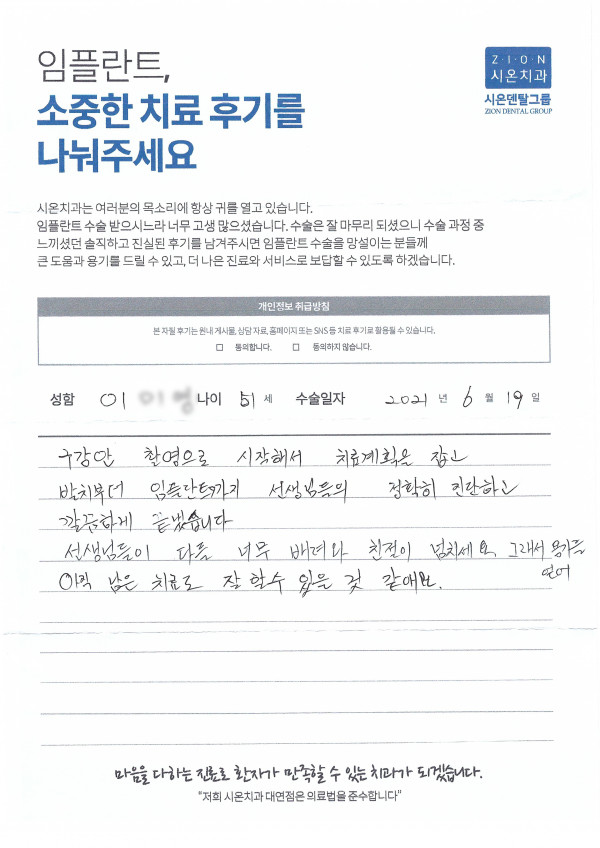 임플란트,
Z·I·O·N
시온치과
소중한 치료 후기를
시온덴탈그룹
ZION DENTAL GROUP
나눠주세요
시온치과는 여러분의 목소리에 항상 귀를 열고 있습니다.
임플란트 수술 받으시느라 너무 고생 많으셨습니다. 수술은 잘 마무리 되셨으니 수술 과정 중
느끼셨던 솔직하고 진실된 후기를 남겨주시면 임플란트 수술을 망설이는 분들께
큰 도움과 용기를 드릴 수 있고, 더 나은 진료와 서비스로 보답할 수 있도록 하겠습니다.
개인정보 취급방침
본 자필 후기는 원내 게시물, 상담 자료, 홈페이지 또는 SNS 등 치료 후기로 활용될 수 있습니다.
☐ 동의합니다. ☐ 동의하지 않습니다.
성함 이 나이 51 세 수술일자 2021 년 6 월 19 일
구강안 촬영으로 시작해서 치료계획을 잡고
발치부터 임플란트까지 선생님들의 정확히 진단하고
깔끔하게 끝냈습니다
선생님들이 다들 너무 배려와 친절이 넘치세요. 그래서 용기를
얻어
아직 남은 치료도 잘 할수 있을 것 같애요.
마음을 다하는 진료로 환자가 만족할 수 있는 치과가 되겠습니다.
"저희 시온치과 대연점은 의료법을 준수합니다"